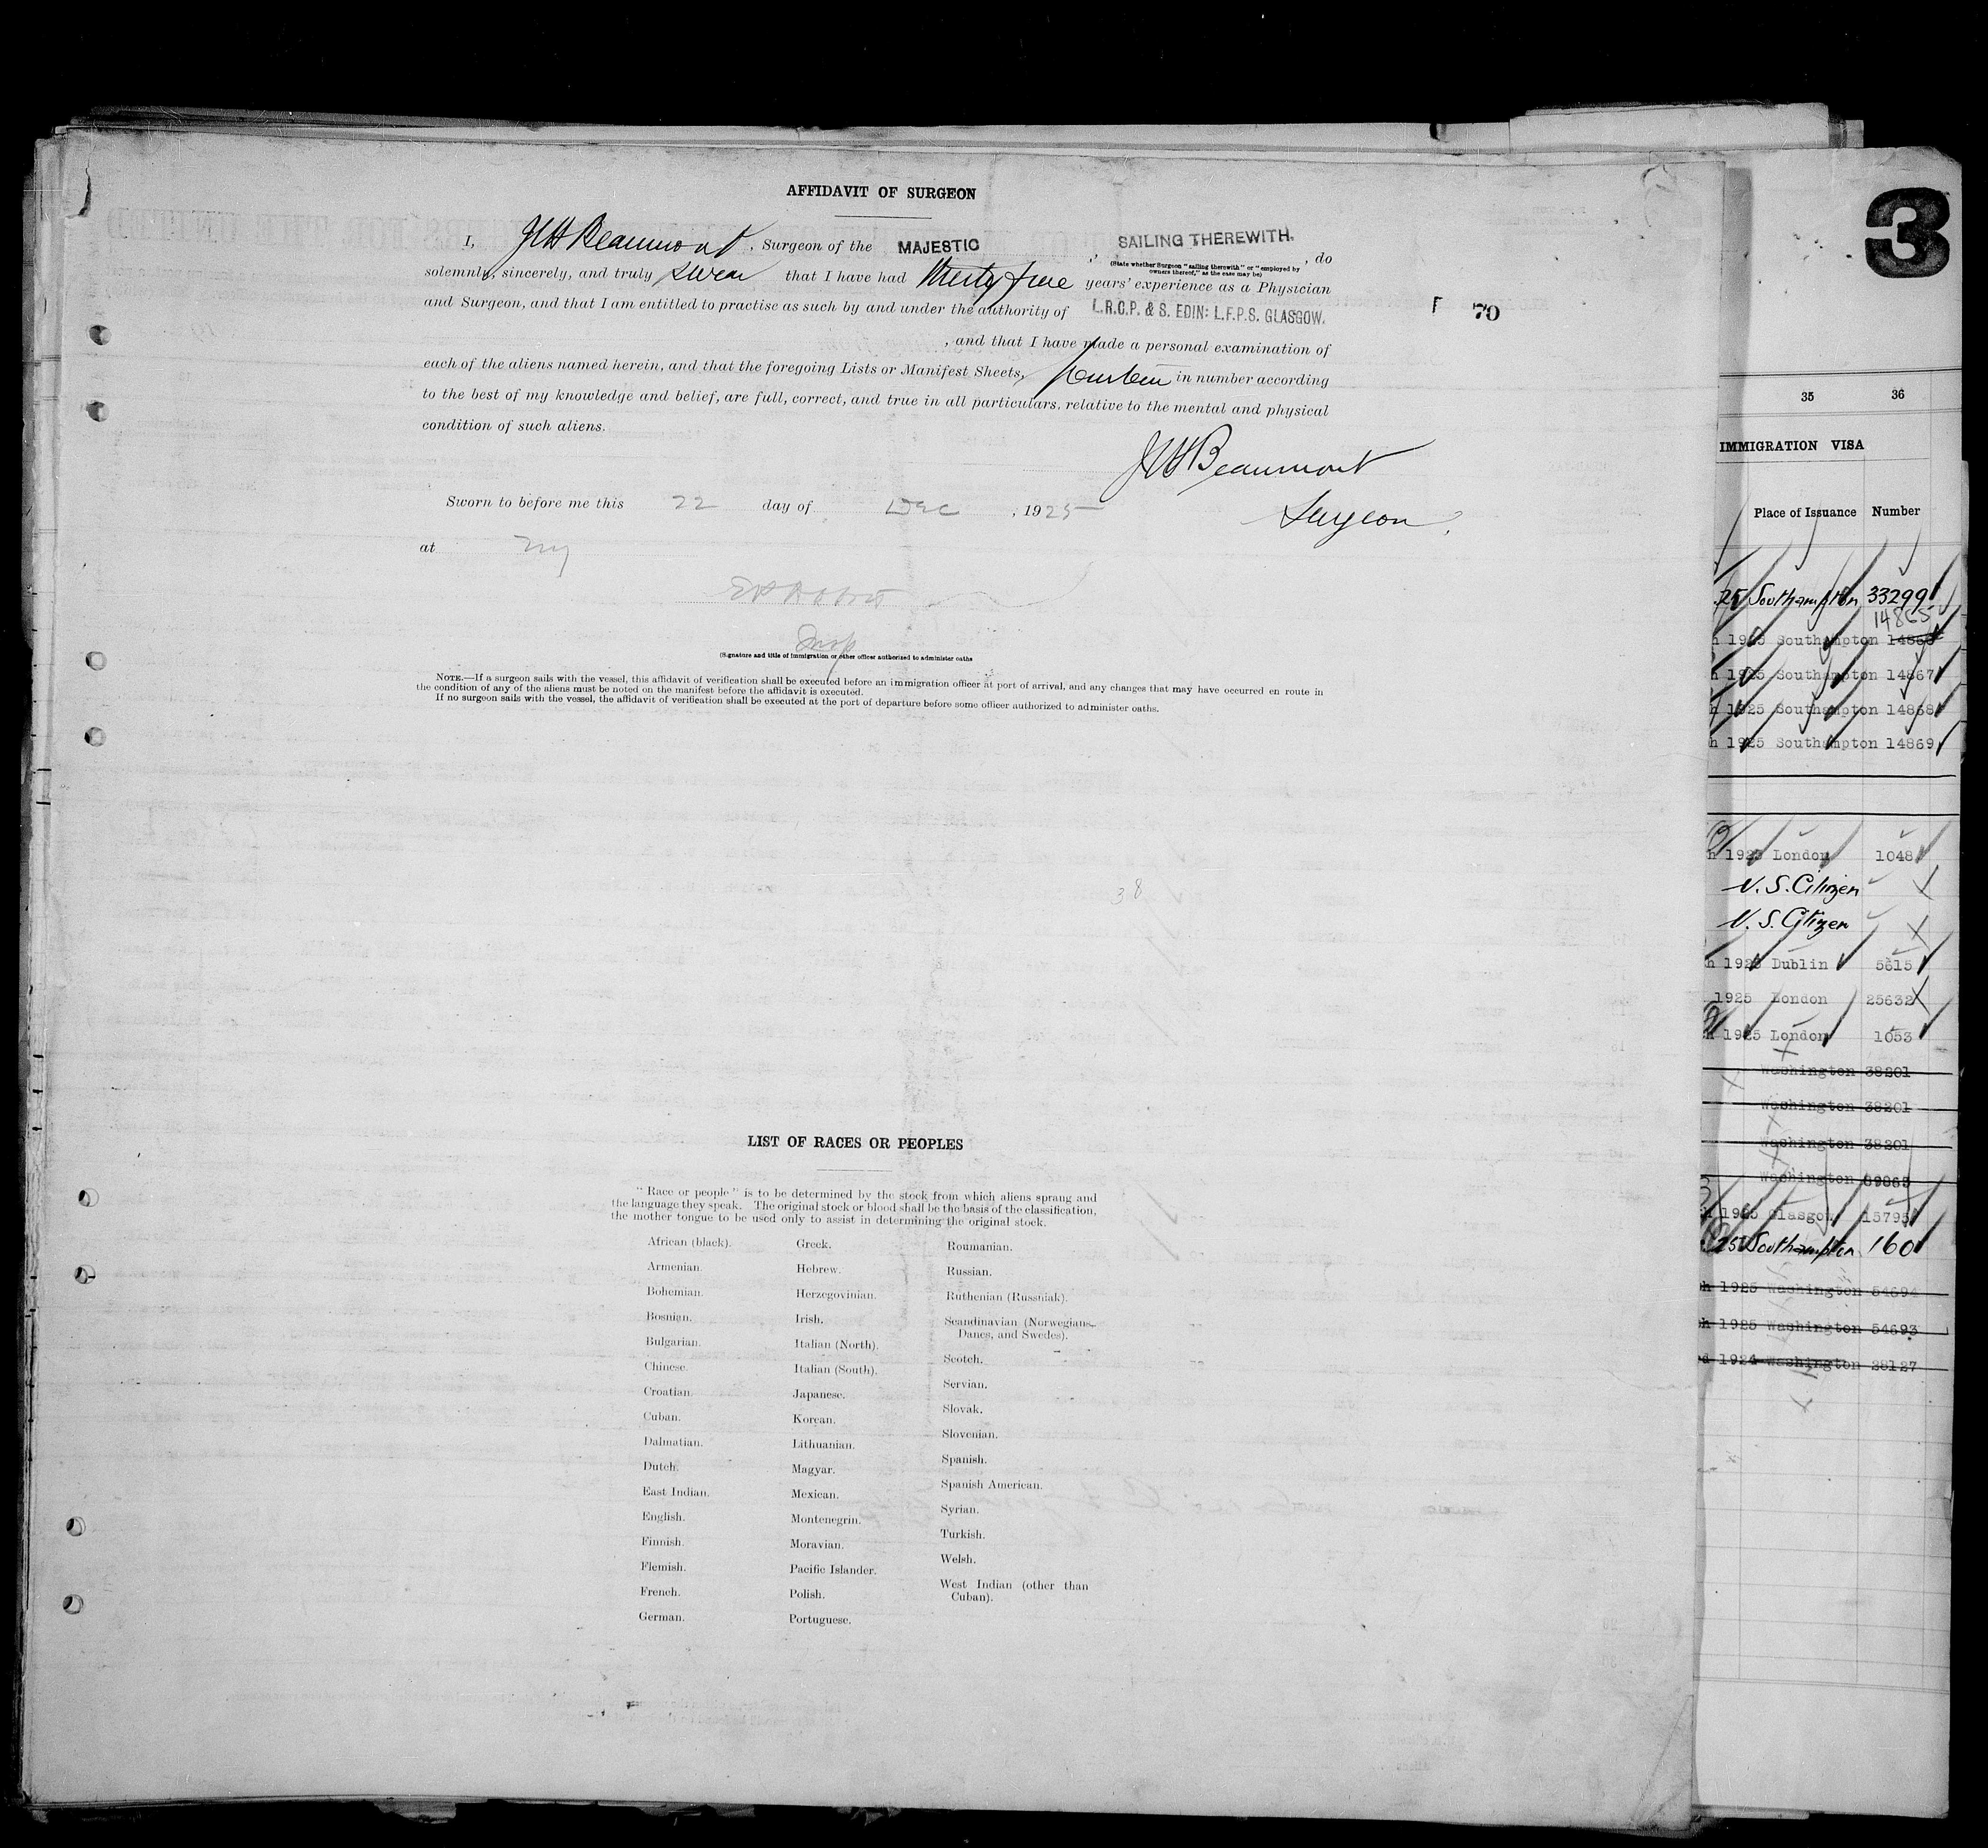 AFFIDAVIT OF SURGEON
I, JHBeaumont, Surgeon of the MAJESTIC, SAILING THEREWITH., do
(State whether Surgeon "sailing therewith" or "employed by
owners thereof," as the case may be)
solemnly, sincerely, and truly swear that I have had thirty five years' experience as a Physician
and Surgeon, and that I am entitled to practise as such by and under the authority of L.R.C.P. & S. EDIN: L.F.P.S. GLASGOW.
, and that I have made a personal examination of
each of the aliens named herein, and that the foregoing Lists or Manifest Sheets, fourteen in number according
to the best of my knowledge and belief, are full, correct, and true in all particulars, relative to the mental and physical
condition of such aliens.
JHBeaumont
Surgeon.
Sworn to before me this 22 day of Dec, 1925
at NY
Insp
(Signature and title of immigration or other officer authorized to administer oaths
NOTE.—If a surgeon sails with the vessel, this affidavit of verification shall be executed before an immigration officer at port of arrival, and any changes that may have occurred en route in
the condition of any of the aliens must be noted on the manifest before the affidavit is executed.
If no surgeon sails with the vessel, the affidavit of verification shall be executed at the port of departure before some officer authorized to administer oaths.
38
LIST OF RACES OR PEOPLES
"Race or people" is to be determined by the stock from which aliens sprang and
the language they speak. The original stock or blood shall be the basis of the classification,
the mother tongue to be used only to assist in determining the original stock.
African (black).
Armenian.
Bohemian.
Bosnian.
Bulgarian.
Chinese.
Croatian.
Cuban.
Dalmatian.
Dutch.
East Indian.
English.
Finnish.
Flemish.
French.
German.
Greek.
Hebrew.
Herzegovinian.
Irish.
Italian (North).
Italian (South).
Japanese.
Korean.
Lithuanian.
Magyar.
Mexican.
Montenegrin.
Moravian.
Pacific Islander.
Polish.
Portuguese.
Roumanian.
Russian.
Ruthenian (Russniak).
Scandinavian (Norwegians,
Danes, and Swedes).
Scotch.
Servian.
Slovak.
Slovenian.
Spanish.
Spanish American.
Syrian.
Turkish.
Welsh.
West Indian (other than
Cuban).
70
3
35 36
IMMIGRATION VISA
Place of Issuance Number
25 Southampton 33299
14865
h 1925 Southampton 14866
h 1925 Southampton 14867
h 1925 Southampton 14868
h 1925 Southampton 14869
h 1925 London 1048
U.S. Citizen
U.S. Citizen
h 1925 Dublin 5615
1925 London 25632
h 1925 London 1053
Washington 38201
Washington 38201
Washington 38201
Washington 89863
1925 Glasgow 15795
25 Southampton 160
h 1925 Washington 54694
h 1925 Washington 54693
d 1924 Washington 28127